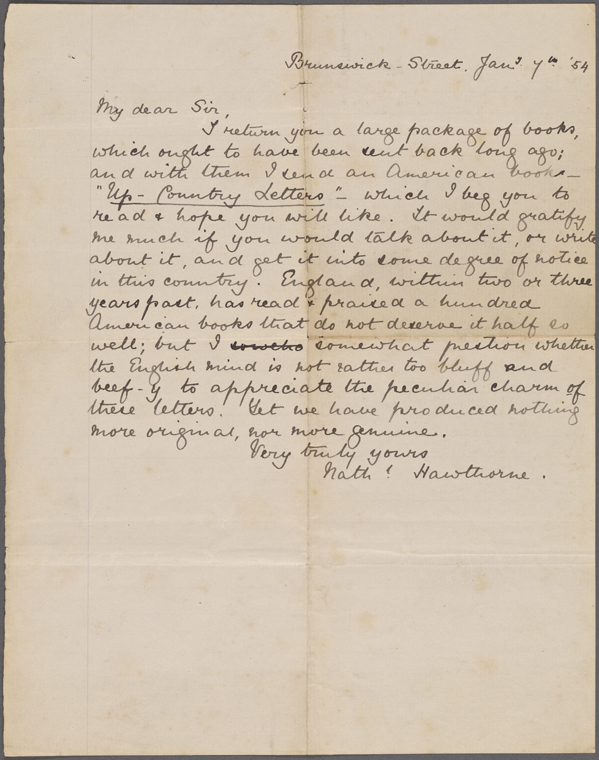 Brunswick-Street. Jany 7th '54
My dear Sir,
I return you a large package of books,
which ought to have been sent back long ago;
and with them I send an American book—
"Up-Country Letters"— which I beg you to
read & hope you will like. It would gratify
me much if you would talk about it, or write
about it, and get it into some degree of notice
in this country. England, within two or three
years past, has read & praised a hundred
American books that do not deserve it half so
well; but I somewhat question whether
the English mind is not rather too bluff and
beef-y to appreciate the peculiar charm of
these letters. Yet we have produced nothing
more original, nor more genuine.
Very truly yours
Nathl Hawthorne.